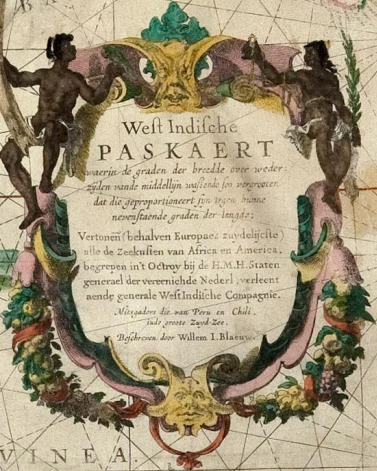 West Indische
PASKAERT
waerin de graden der breedde over weder-
zyden vande middellijn wassende soo vergrooten
dat die geproportioneert sijn tegen hunne
nevenstaende graden der lengde:
Vertonende (behalven Europaes zuydelijcste)
alle de Zeekusten van Africa en America,
begrepen in't Octroy bij de H.M.H. Staten
generael der vereenichde Nederl. verleent
aende generale West Indische Compagnie.
Mitsgaders die van Peru en Chili,
inde groote Zuyd-Zee.
Beschreven door Willem I. Blaeuw.
VINEA.